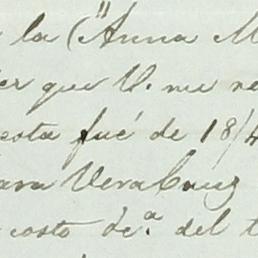 la ("Anna M
que V. me re
esta fué de 18/4
ara VeraCruz
costo de.ª del t